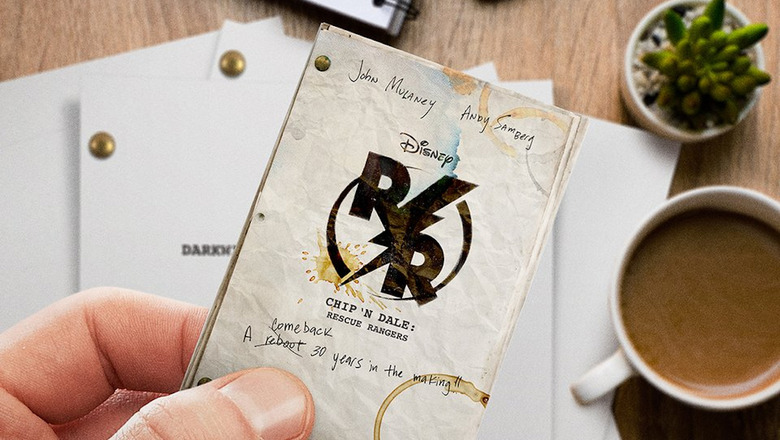 John Mulaney Andy Samberg
Disney
RR
CHIP 'N DALE:
RESCUE RANGERS
comeback
A reboot 30 years in the making!!